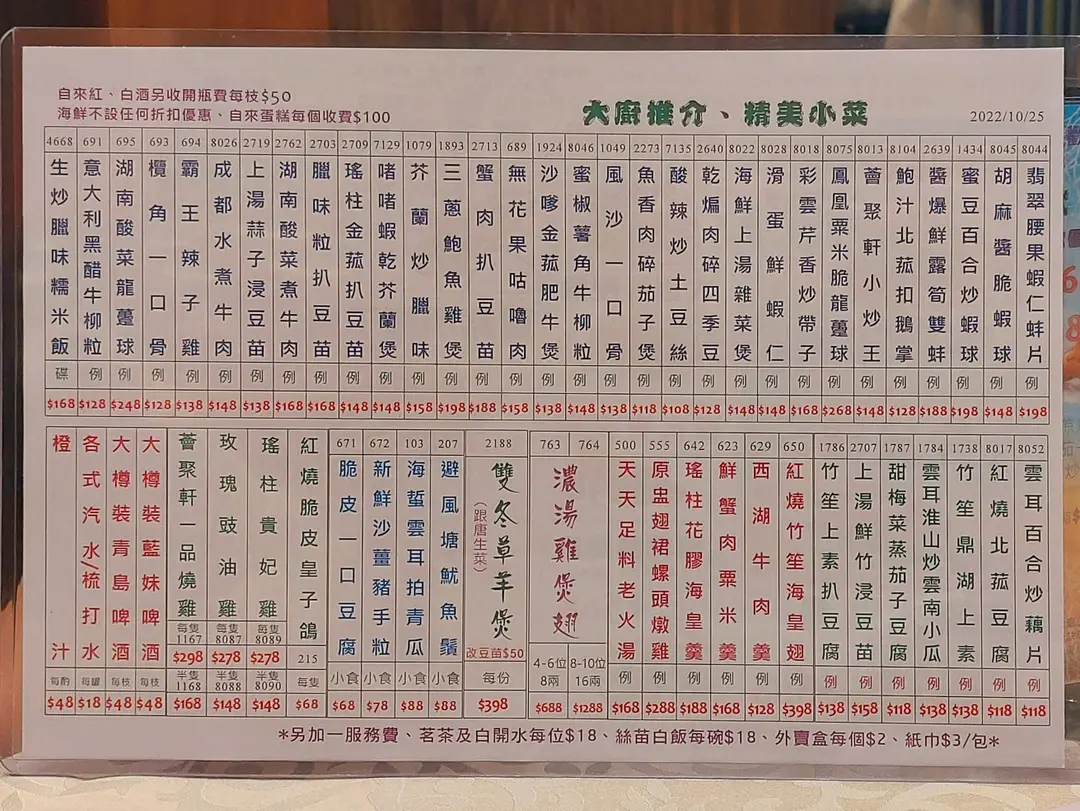 自來紅、白酒另收開瓶費每枝$50
海鮮不設任何折扣優惠、自來蛋糕每個收費$100
大廚推介、精美小菜
2022/10/25
8044 翡翠腰果蝦仁蚌片 例 $198
8045 胡麻醬脆蝦球 例 $148
1434 蜜豆百合炒蝦球 例 $198
2639 醬爆鮮露筍雙蚌 例 $188
8104 鮑汁北菰扣鵝掌 例 $128
8013 薈聚軒小炒王 例 $148
8075 鳳凰粟米脆龍躉球 例 $268
8018 彩雲芹香炒帶子 例 $168
8028 滑蛋鮮蝦仁 例 $148
8022 海鮮上湯雜菜煲 例 $148
2642 乾煸肉碎四季豆 例 $128
7135 酸辣炒土豆絲 例 $108
2273 魚香肉碎茄子煲 例 $118
1049 風沙一口骨 例 $138
8046 蜜椒薯角牛柳粒 例 $148
1924 沙嗲金菰肥牛煲 例 $138
689 無花果咕嚕肉 例 $158
2713 蟹肉扒豆苗 例 $188
1893 三蔥鮑魚雞煲 例 $198
1079 芥蘭炒臘味 例 $158
7129 啫啫蝦乾芥蘭煲 例 $148
2709 瑤柱金菰扒豆苗 例 $148
2703 臘味粒扒豆苗 例 $168
2640 湖南酸菜煮牛肉 例 $168
2719 上湯蒜子浸豆苗 例 $138
8026 成都水煮牛肉 例 $148
694 霸王辣子雞 例 $138
693 欖角一口骨 例 $128
695 湖南酸菜龍躉球 例 $248
691 意大利黑醋牛柳粒 例 $128
4668 生炒臘味糯米飯 碟 $168
8052 雲耳百合炒藕片 例 $118
8017 紅燒北菰豆腐 例 $118
1738 竹笙鼎湖上素 例 $138
1784 雲耳淮山炒雲南小瓜 例 $138
1787 甜梅菜蒸茄子豆腐 例 $118
2707 上湯鮮竹浸豆苗 例 $158
1786 竹笙上素扒豆腐 例 $138
650 紅燒竹笙海皇翅 例 $398
629 西湖牛肉羹 例 $128
623 鮮蟹肉粟米羹 例 $168
642 瑤柱花膠海皇羹 例 $188
555 原盅翅裙螺頭燉雞 例 $288
500 天天足料老火湯 例 $168
763 764 濃湯雞煲翅
4-6位 8兩 $688
8-10位 16兩 $1288
2188 雙冬草羊煲 (跟唐生菜) 改豆苗$50 每份 $398
207 避風塘魷魚鬚 小食 $88
103 海蜇雲耳拍青瓜 小食 $88
672 新鮮沙薑豬手粒 小食 $78
671 脆皮一口豆腐 小食 $68
紅燒脆皮皇子鴿 215 每隻 $68
瑤柱貴妃雞 每隻 8089 $278 半隻 8090 $148
玫瑰豉油雞 每隻 8087 $278 半隻 8088 $148
薈聚軒一品燒雞 每隻 1167 $298 半隻 1168 $168
大樽裝藍妹啤酒 每枝 $48
大樽裝青島啤酒 每枝 $48
各式汽水/梳打水 每罐 $18
橙汁 每酌 $48
*另加一服務費、茗茶及白開水每位$18、絲苗白飯每碗$18、外賣盒每個$2、紙巾$3/包*